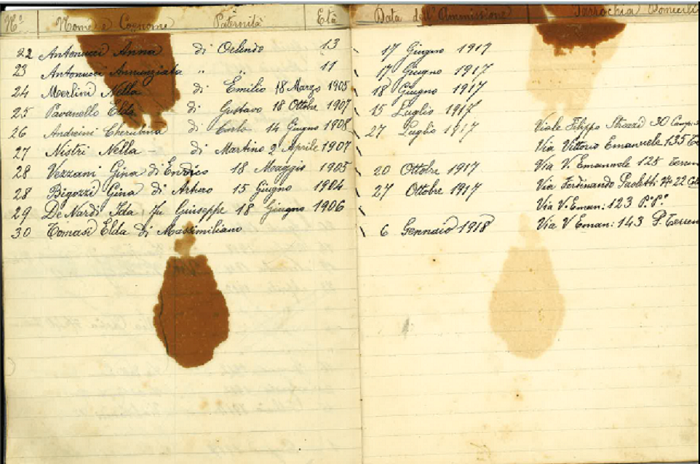 Nº Nome e Cognome Paternità Età Data dell'Ammissione Parrochia Domicilio
22 Antonucci Anna di Orlando 13 17 Giugno 1917
23 Antonucci Annunziata " " 11 17 Giugno 1917
24 Merlini Nella di Emilio 18 Marzo 1905 18 Giugno 1917
25 Pavanello Elda di Gustavo 18 Ottobre 1907 15 Luglio 1917
26 Andreini Cherubina di Carlo 14 Giugno 1908 27 Luglio 1917 Viale Filippo Strozzi 30
27 Nistri Nella di Martino 2 Aprile 1907 Via Vittorio Emanuele 135
28 Vezzani Gina di Enrico 18 Maggio 1905 20 Ottobre 1917 Via V. Emanuele 125
28 Bigozzi Gina di Arturo 15 Giugno 1904 27 Ottobre 1917 Via Ferdinando Paoletti Nº 22
29 De Nardi Ida fu Giuseppe 18 Giugno 1906 Via V. Eman: 123 P.º
30 Tomasi Elda di Massimiliano 6 Gennaio 1918 Via V Eman: 143 P. Terreno